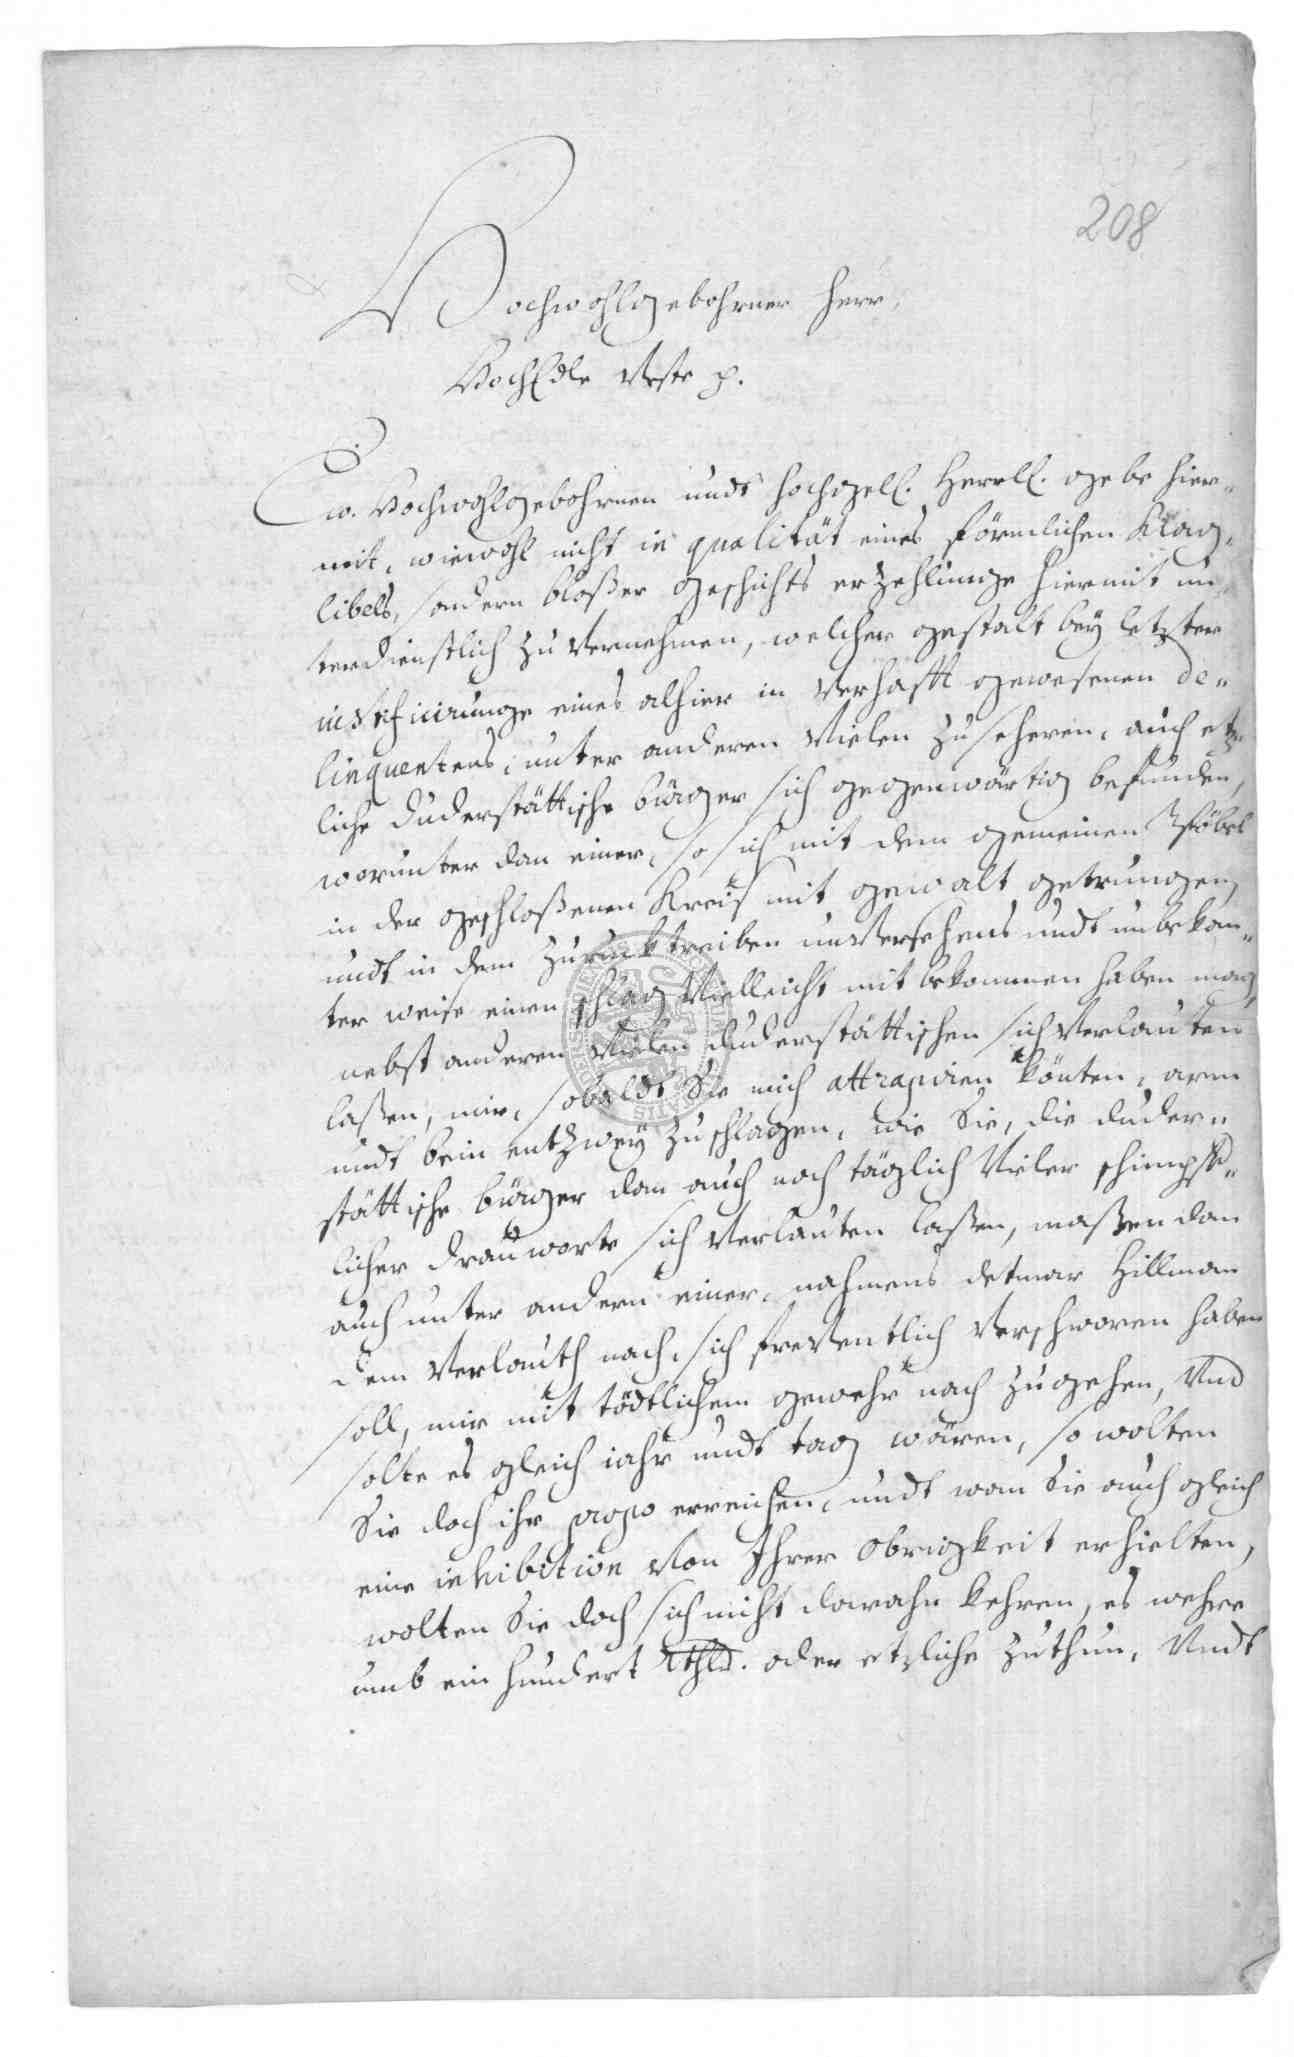 208
Hochwohlgebohrner Herr,
HochEdle Veste p.
Ew. Hochwohlgebohrnen undt hochgel. Herrl. gebe hier„
mit, wiewohl nicht in qualität eines förmlichen Klag„
libels, sondern bloßer geschichts erzehlunge hiermit un„
terdienstlich zu vernehmen, welcher gestalt bey letzter
iustificirunge eines alhier in Verhafft gewesenen de„
linquentens, unter anderen vielen zuseheren, auch etz„
liche Duderstättische bürger sich gegenwärtig befunden,
worunter dan einer, so sich mit dem gemeinen Pföbel
in der geschloßenen Kreis mit gewalt getrungen,
undt in dem zurucktreiben unversehens undt unbekan„
ter weise einen schlag vielleicht mit bekommen haben mag,
nebst anderen vielen Duderstättischen sich verlauten
laßen, mir, sobaldt Sie mich attrapiren könten, arm
undt bein entzwey zuschlagen, wie Sie, die Duder„
stättische bürger dan auch noch täglich vieler schimpff„
licher drauworte sich verlauten laßen, maßen dan
auch unter andern einer, nahmens Detmar Hillman
dem Verlauth nach, sich freventlich verschworen haben
soll, mir mit tödtlichem gewehr nach zugehen, Und
solte es gleich iahr undt tag wären, so wolten
Sie doch ihr propo erreichen, undt wan Sie auch gleich
eine inhibition von Ihrer Obrigkeit erhielten,
wolten Sie doch sich nicht darahn kehren, es wehre
umb ein hundert Rthlr. oder etzliche zuthun, Undt